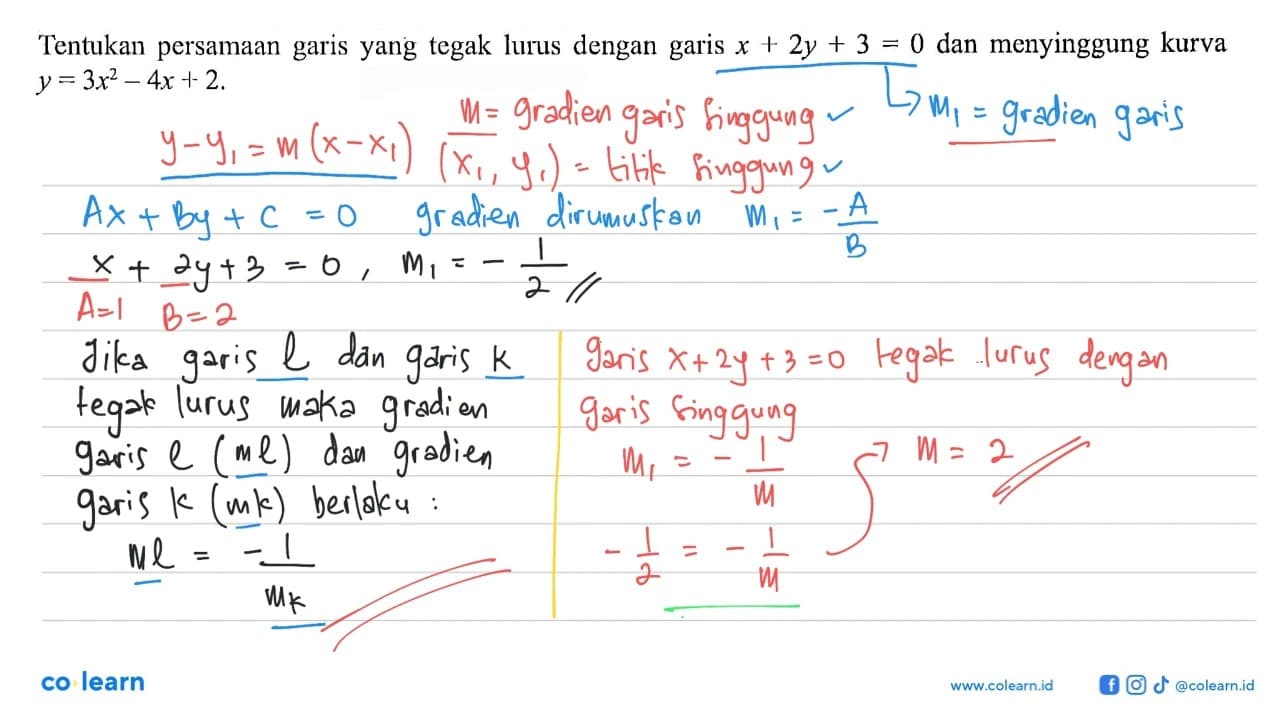 Tentukan persamaan garis yang tegak lurus dengan garis x + 2y + 3 = 0 dan menyinggung kurva
y = 3x² – 4x + 2.
m = gradien garis singgung ✓
↳ m₁ = gradien garis
y - y₁ = m (x - x₁)
(x₁, y₁) = titik singgung ✓
Ax + By + C = 0 gradien dirumuskan m₁ = -A/B
x + 2y + 3 = 0, m₁ = - 1/2 //
A=1 B=2
Jika garis l dan garis k
tegak lurus maka gradien
garis l (ml) dan gradien
garis k (mk) berlaku :
ml = -1/mk
garis x + 2y + 3 = 0 tegak lurus dengan
garis singgung
m₁ = - 1/m
- 1/2 = - 1/m
→ m = 2
co learn
www.colearn.id
@colearn.id